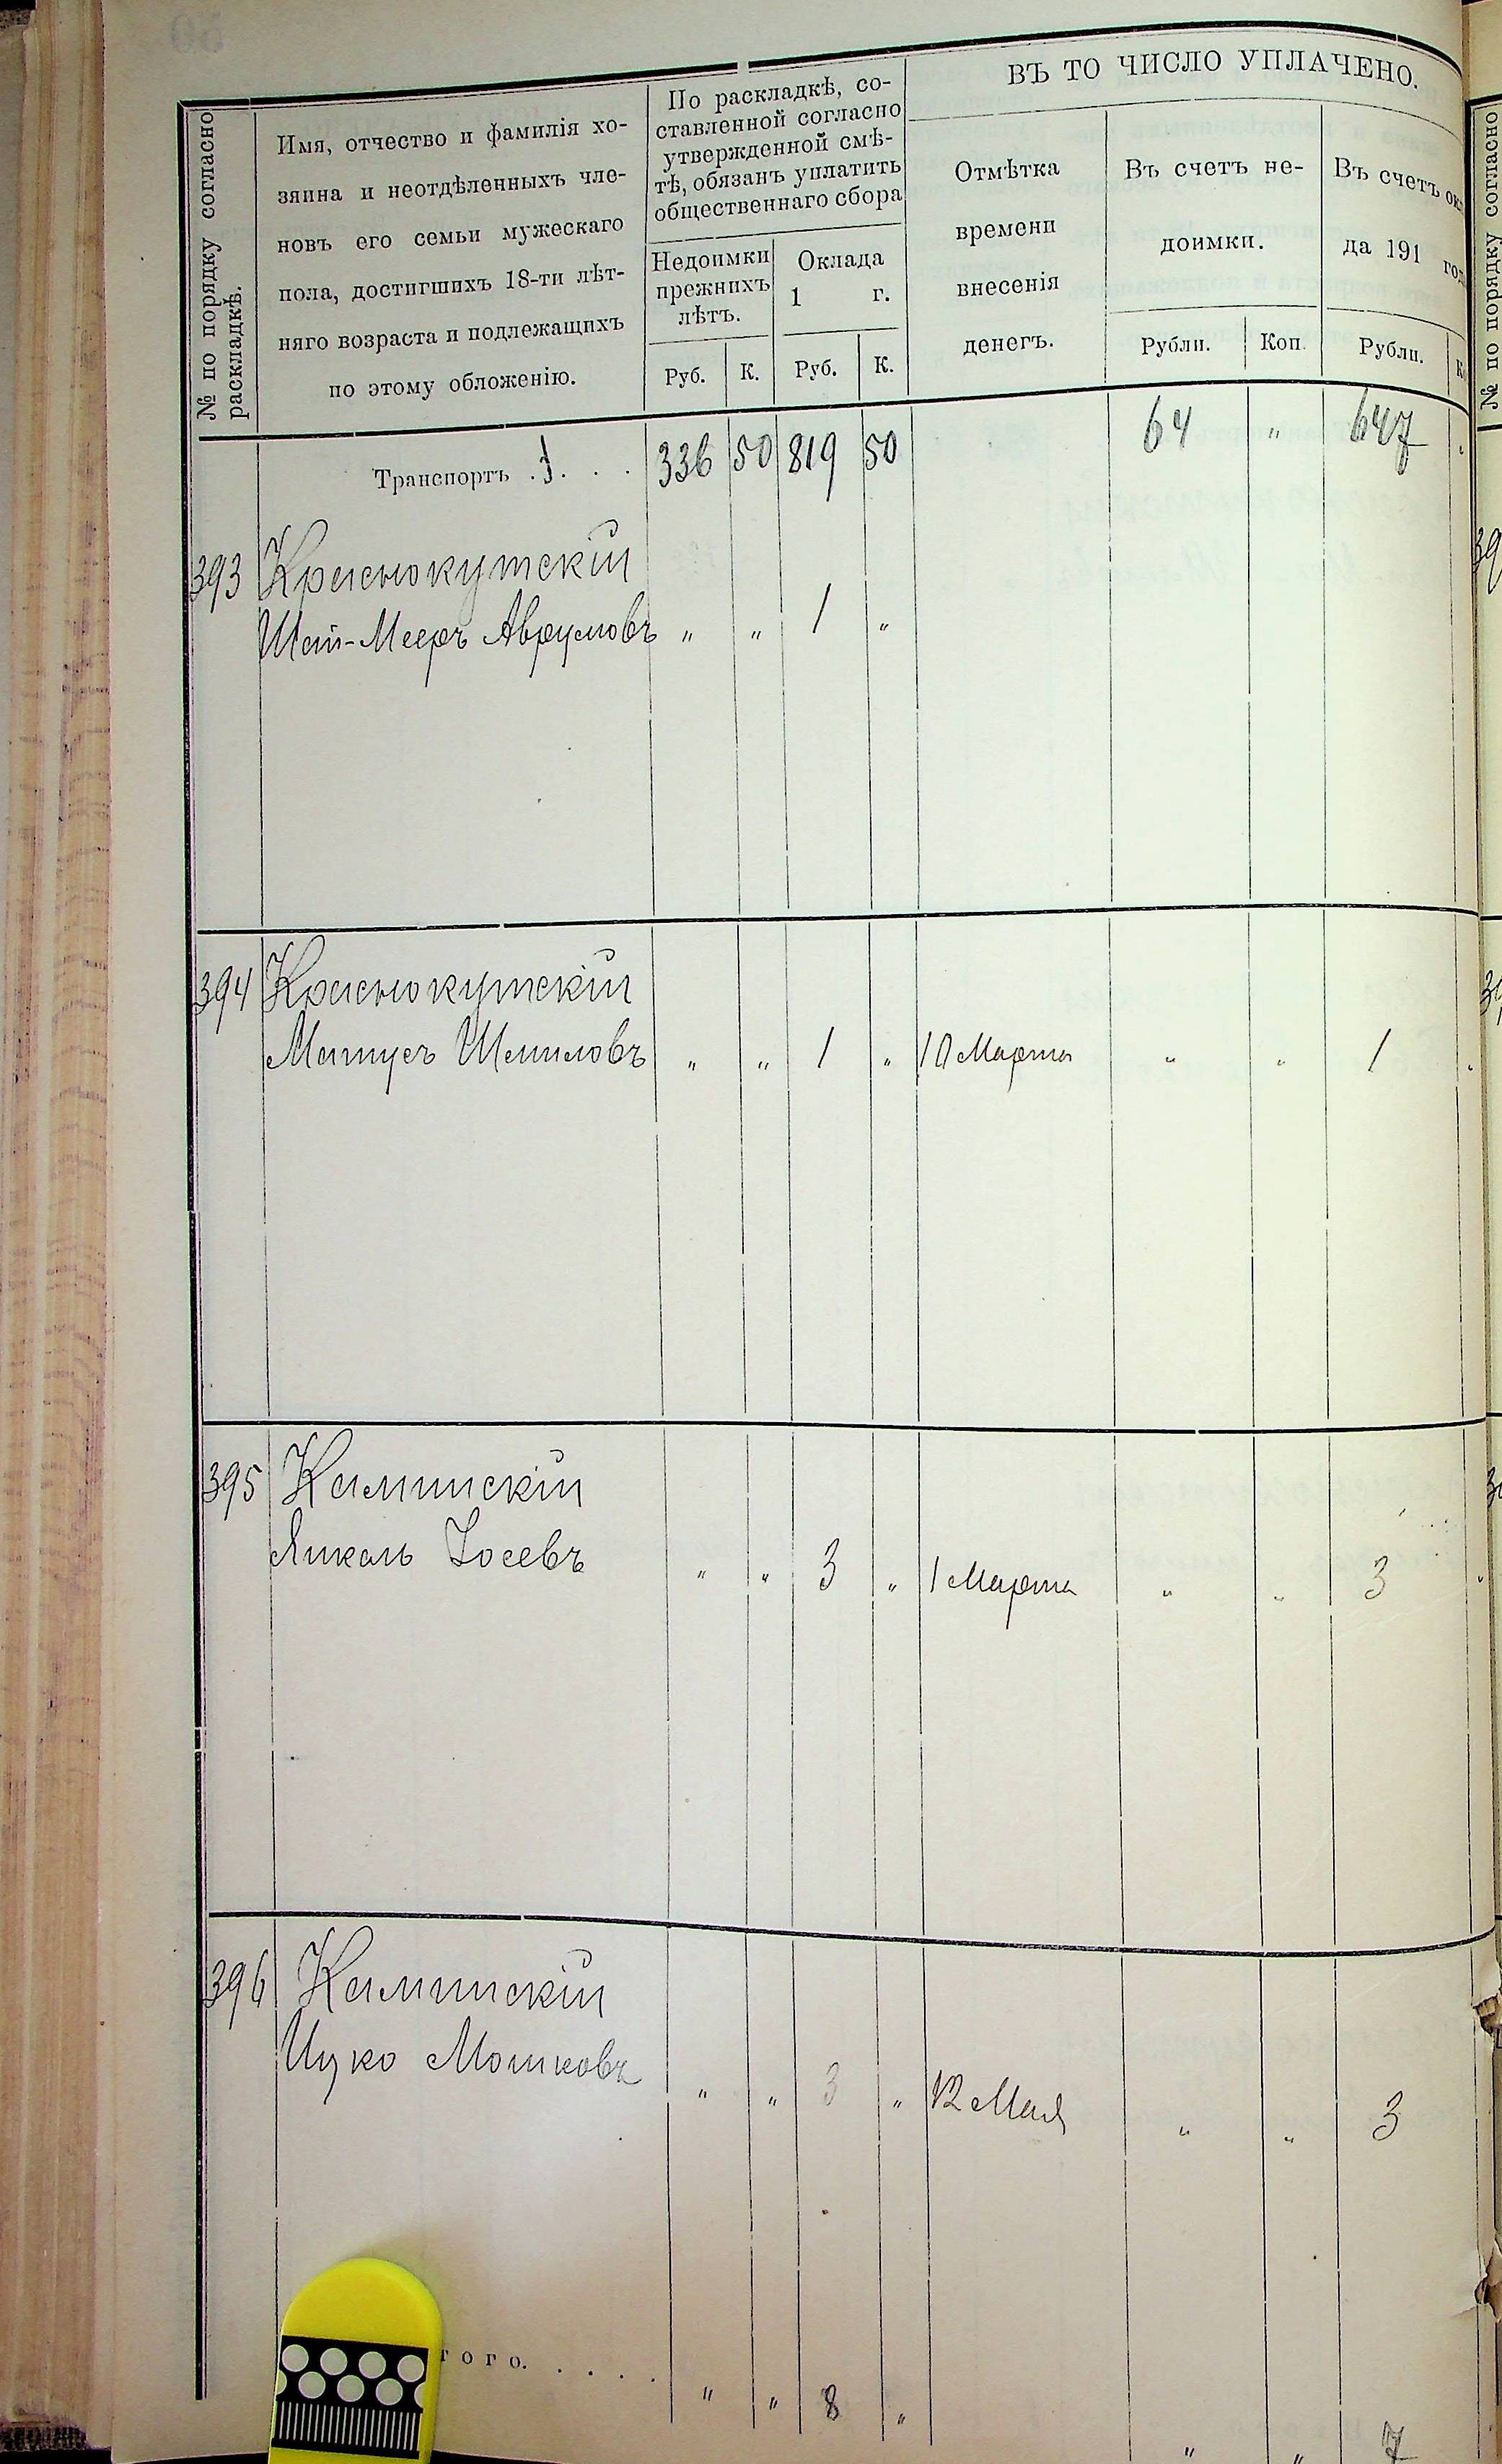 № по порядку согласно
раскладкѣ.
Имя, отчество и фамилія хо-
зяина и неотдѣленныхъ чле-
новъ его семьи мужескаго
пола, достигшихъ 18-ти лѣт-
няго возраста и подлежащихъ
по этому обложенію.
По раскладкѣ, со-
ставленной согласно
утвержденной смѣ-
тѣ, обязанъ уплатить
общественнаго сбора
Недоимки
прежнихъ
лѣтъ.
Оклада
1 г.
Руб. К. Руб. К.
ВЪ ТО ЧИСЛО УПЛАЧЕНО.
Отмѣтка
времени
внесенія
денегъ.
Въ счетъ не-
доимки.
Рубли. Коп.
Въ счетъ ок
да 191 год
Рубли. К
Транспортъ . . . 336 50 819 50 64 " 647
393 Краснокутскій
Шай-Мееръ Аврумовъ " " 1 "
394 Краснокутскій
Матусъ Шмиловъ " " 1 " 10 Марта " " 1
395 Каминскій
Янкель Іосевъ " " 3 " 1 Марта " " 3
396 Каминскій
Ицко Мошковъ " " 3 " 12 Мая " " 3
того. . . . . " " 8 " " " 7
№ по порядку согласно